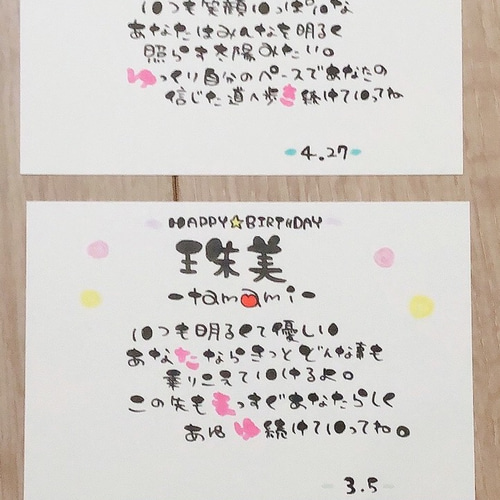 いつも笑顔いっぱいな
あなたはみんなを明るく
照らす太陽みたい。
ゆっくり自分のペースであなたの
信じた道へ歩き続けていってね
4.27
HAPPY☆BIRTHDAY
珠美
-tamami-
いつも明るくて優しい
あなたならきっとどんな事も
乗りこえていけるよ。
この先もまっすぐあなたらしく
あゆみ続けていってね。
3.5